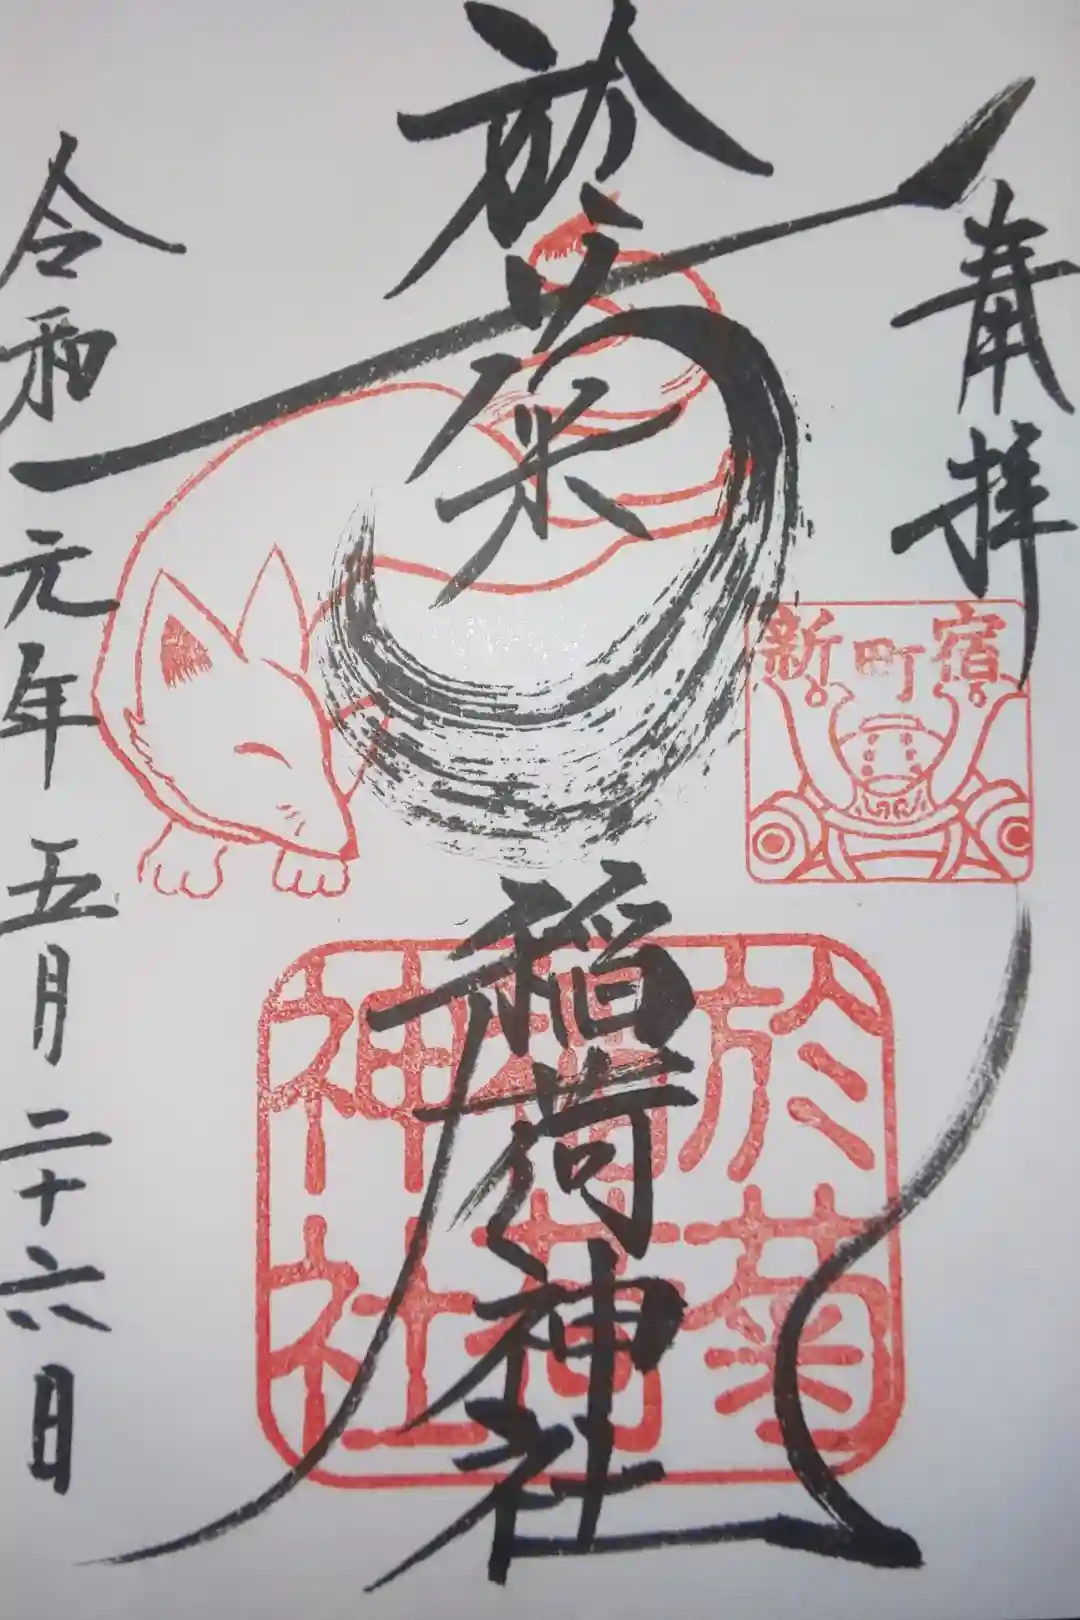 奉拝
新町宿
於菊
稲荷神社
於菊
稲荷
神社
令和元年五月二十六日